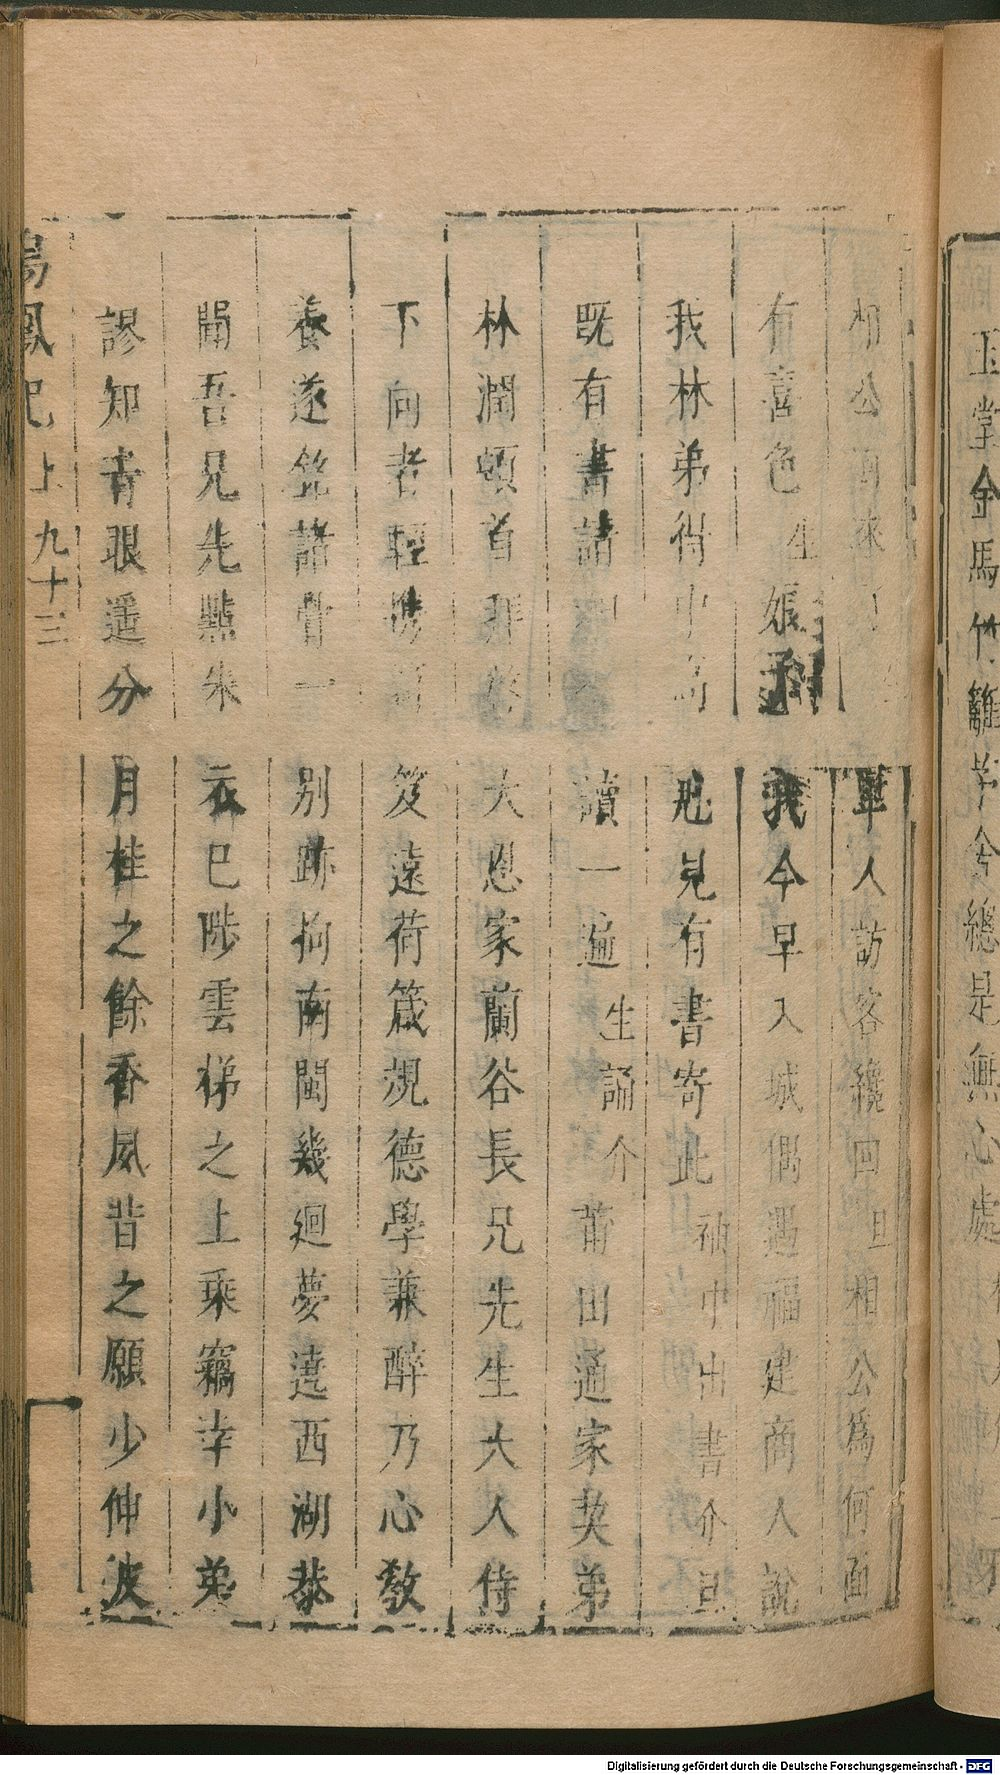 玉堂金馬竹籬茅舍總是無心處
相公回來了 畢人訪客纔回旦相公爲何面
有喜色生娘子我今早入城偶遇福建商人說
我林弟得中高魁見有書寄此袖中出書介旦
既有書請 讀一遍生誦介莆田通家契弟
林潤頓首拜 大恩家蘭谷長兄先生大人侍
下向者輕 笈遠荷箴規德學兼醉乃心教
養遂 一別跡拘南閩幾廻夢遶西湖恭
聞吾兄先點朱衣已陟雲梯之上乘竊幸小弟
謬知青眼遥分月桂之餘香夙昔之願少伸汲
鳳 上 九十三
Digitalisierung gefördert durch die Deutsche Forschungsgemeinschaft - DFG